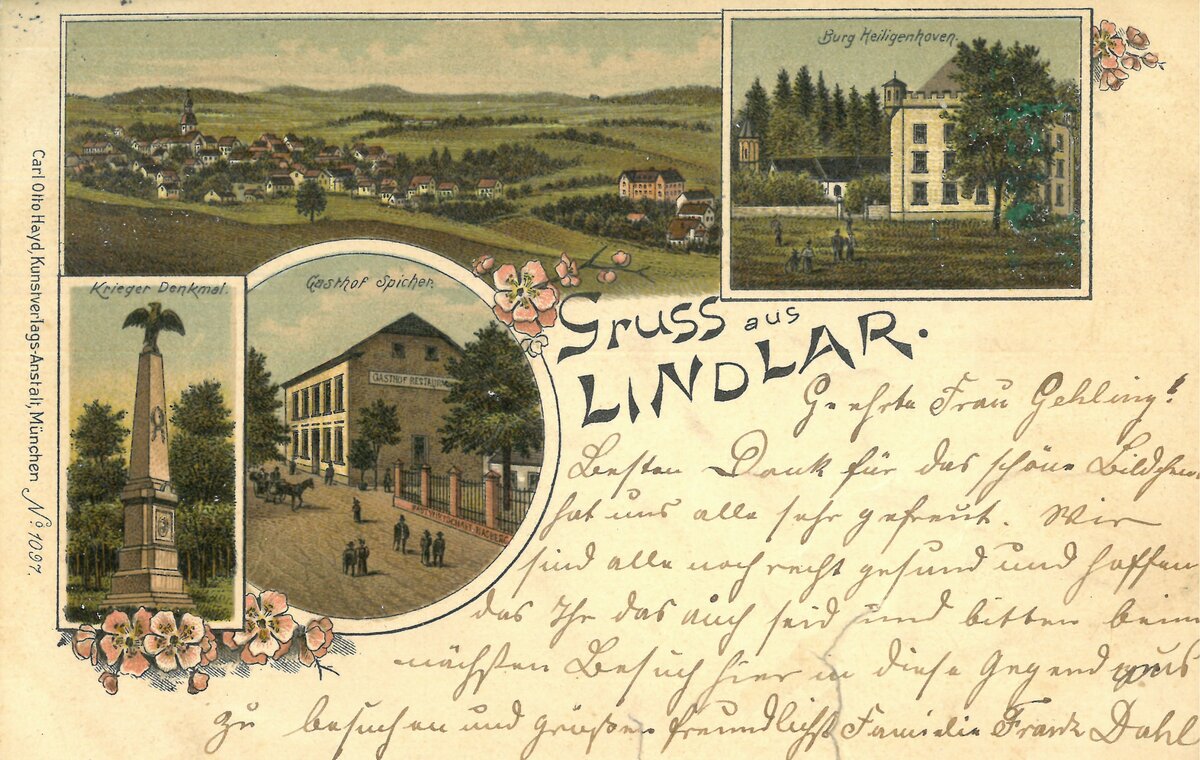 Burg Heiligenhoven.
Krieger Denkmal.
Gasthof Spicher.
GASTHOF RESTAUR
Gruss aus
LINDLAR.
Carl Otto Hayd, Kunstverlags-Anstalt, München No. 1097.
Geehrte Frau Gehling!
Besten Dank für das schöne Bildchen
hat uns alle sehr gefreut. Wir
sind alle noch recht gesund und hoffen
das Ihr das auch seid und bitten beim
nächsten Besuch hier in diese Gegend uns
zu besuchen und grüßen freundlichst Familie Frank Dahl